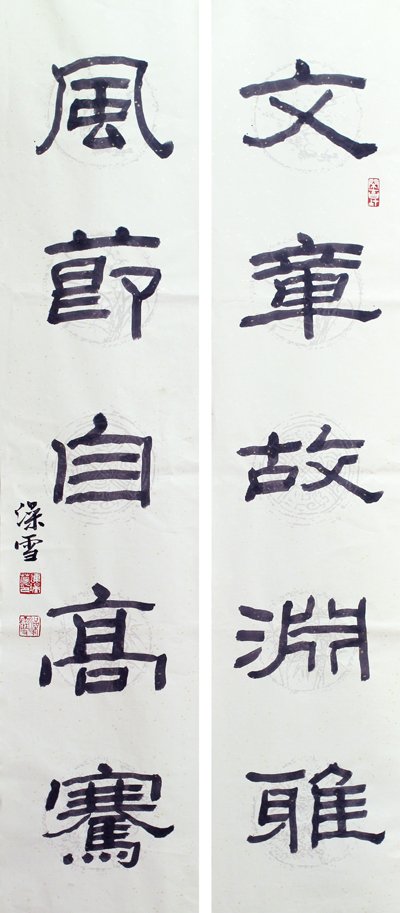 文章故淵雅
風節自高騫
深雪